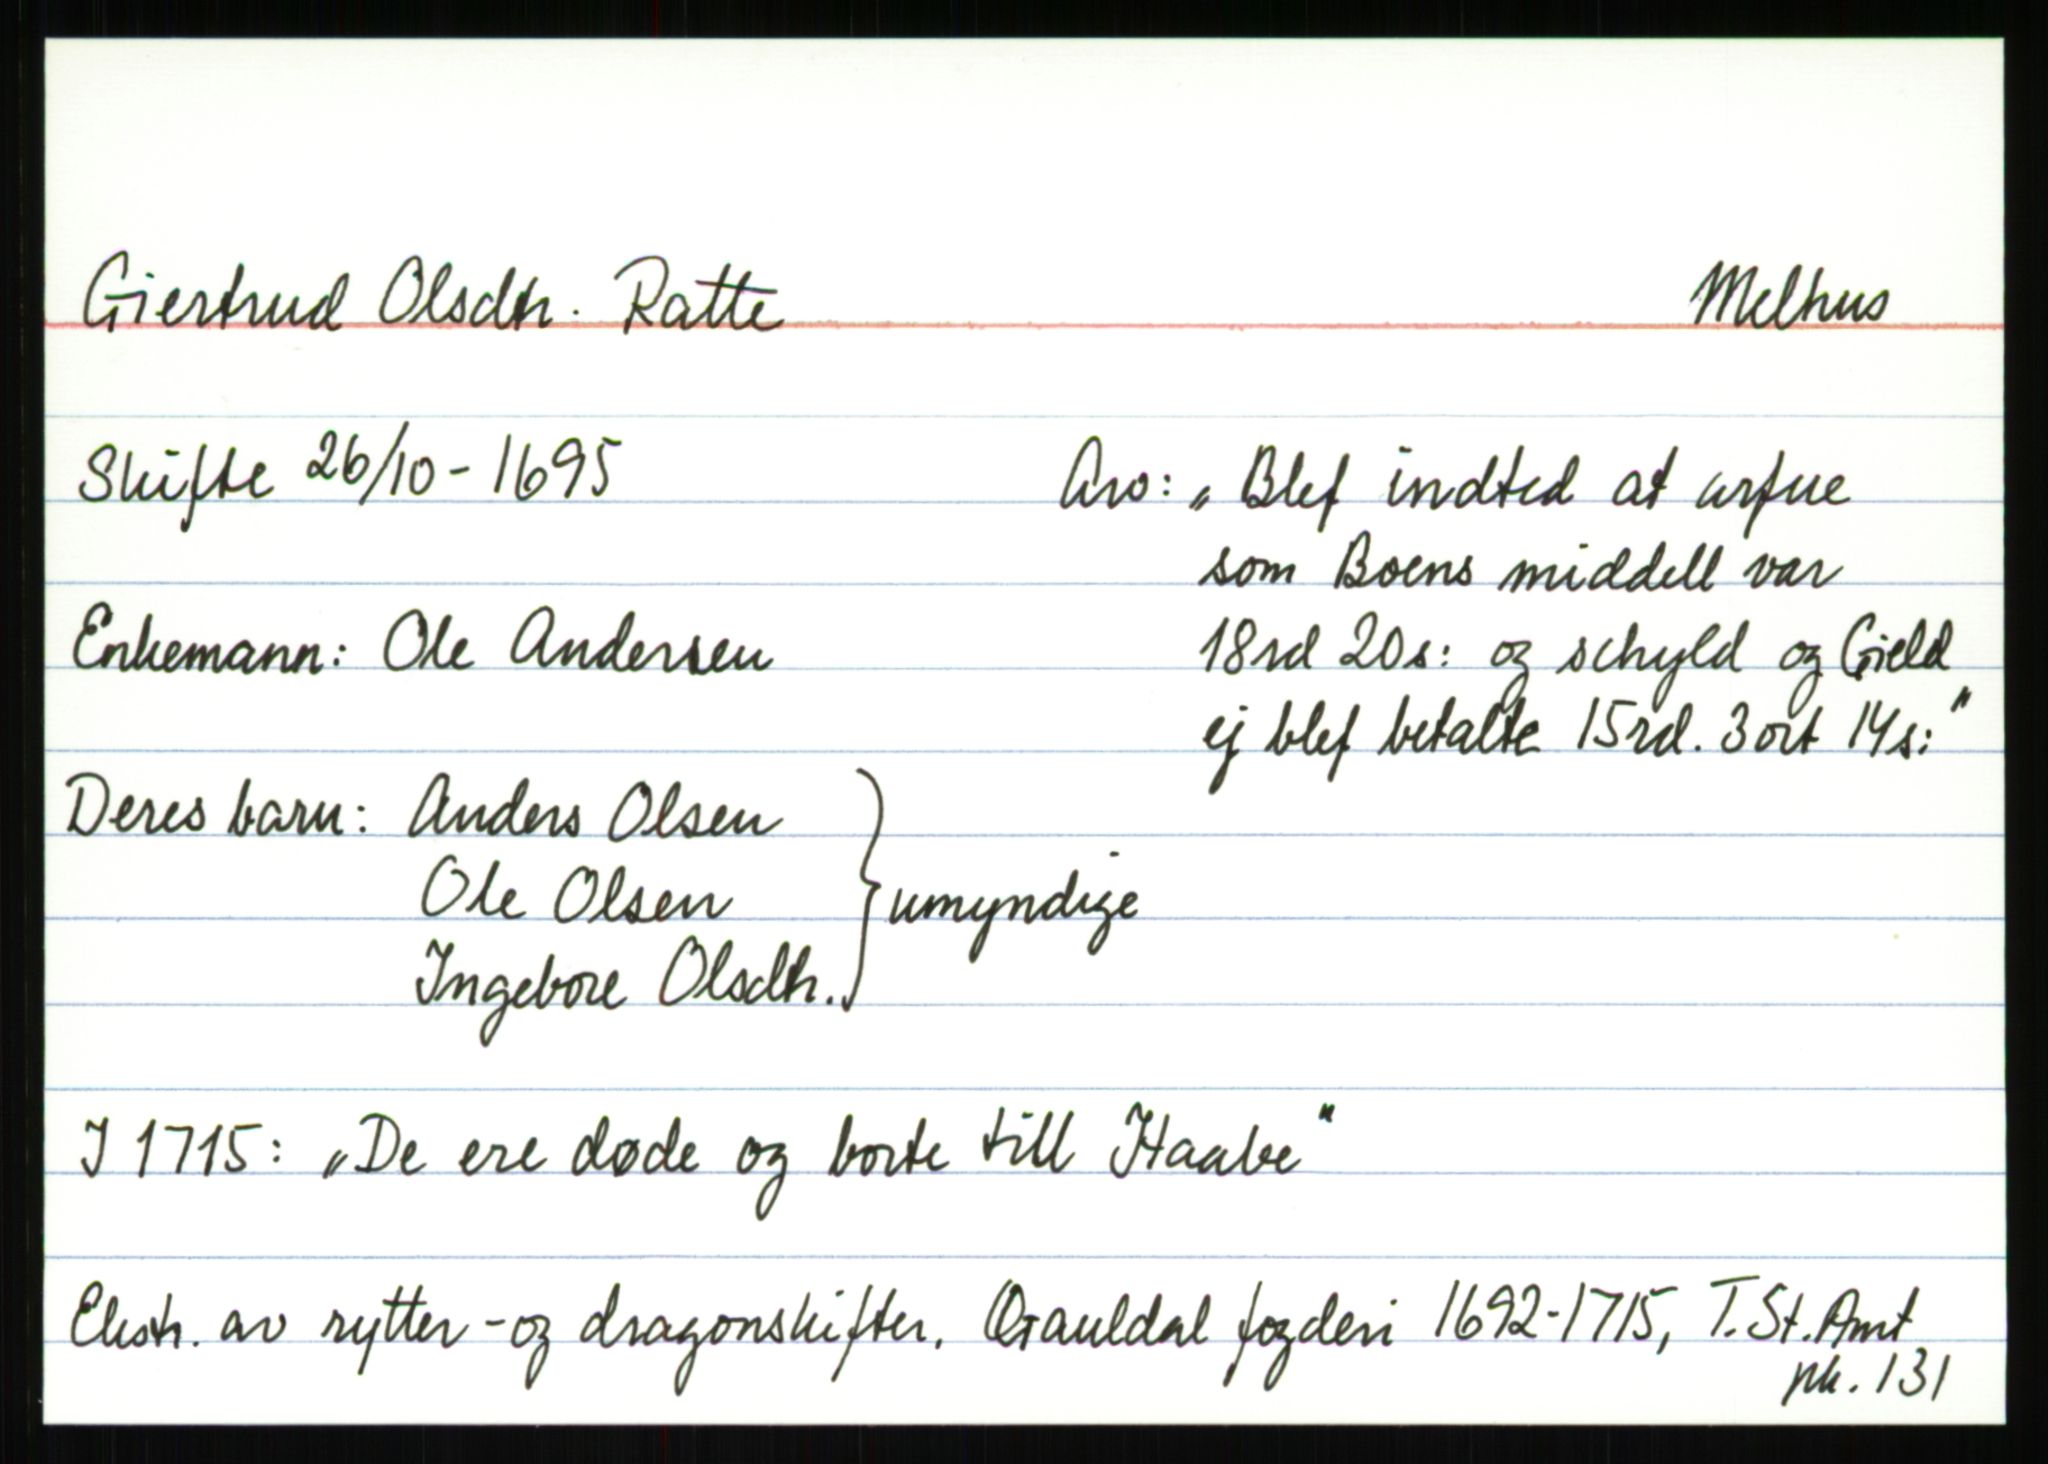 Giertrud Olsdtr. Ratte Melhus
Skifte 26/10-1695
Arv: „Blef indted at arfue
som Boens middell var
18rd 20s: og schyld og Gield
ej blef betalte 15rd. 3ort 14s:"
Enkemann: Ole Andersen
Deres barn: Anders Olsen
Ole Olsen
Ingebore Olsdtr.
umyndige
I 1715: „De ere døde og borte till Haabe"
Ekstr. av rytter-og dragonskifter, Gauldal fogderi 1692-1715, T. St. Amt
pk. 131